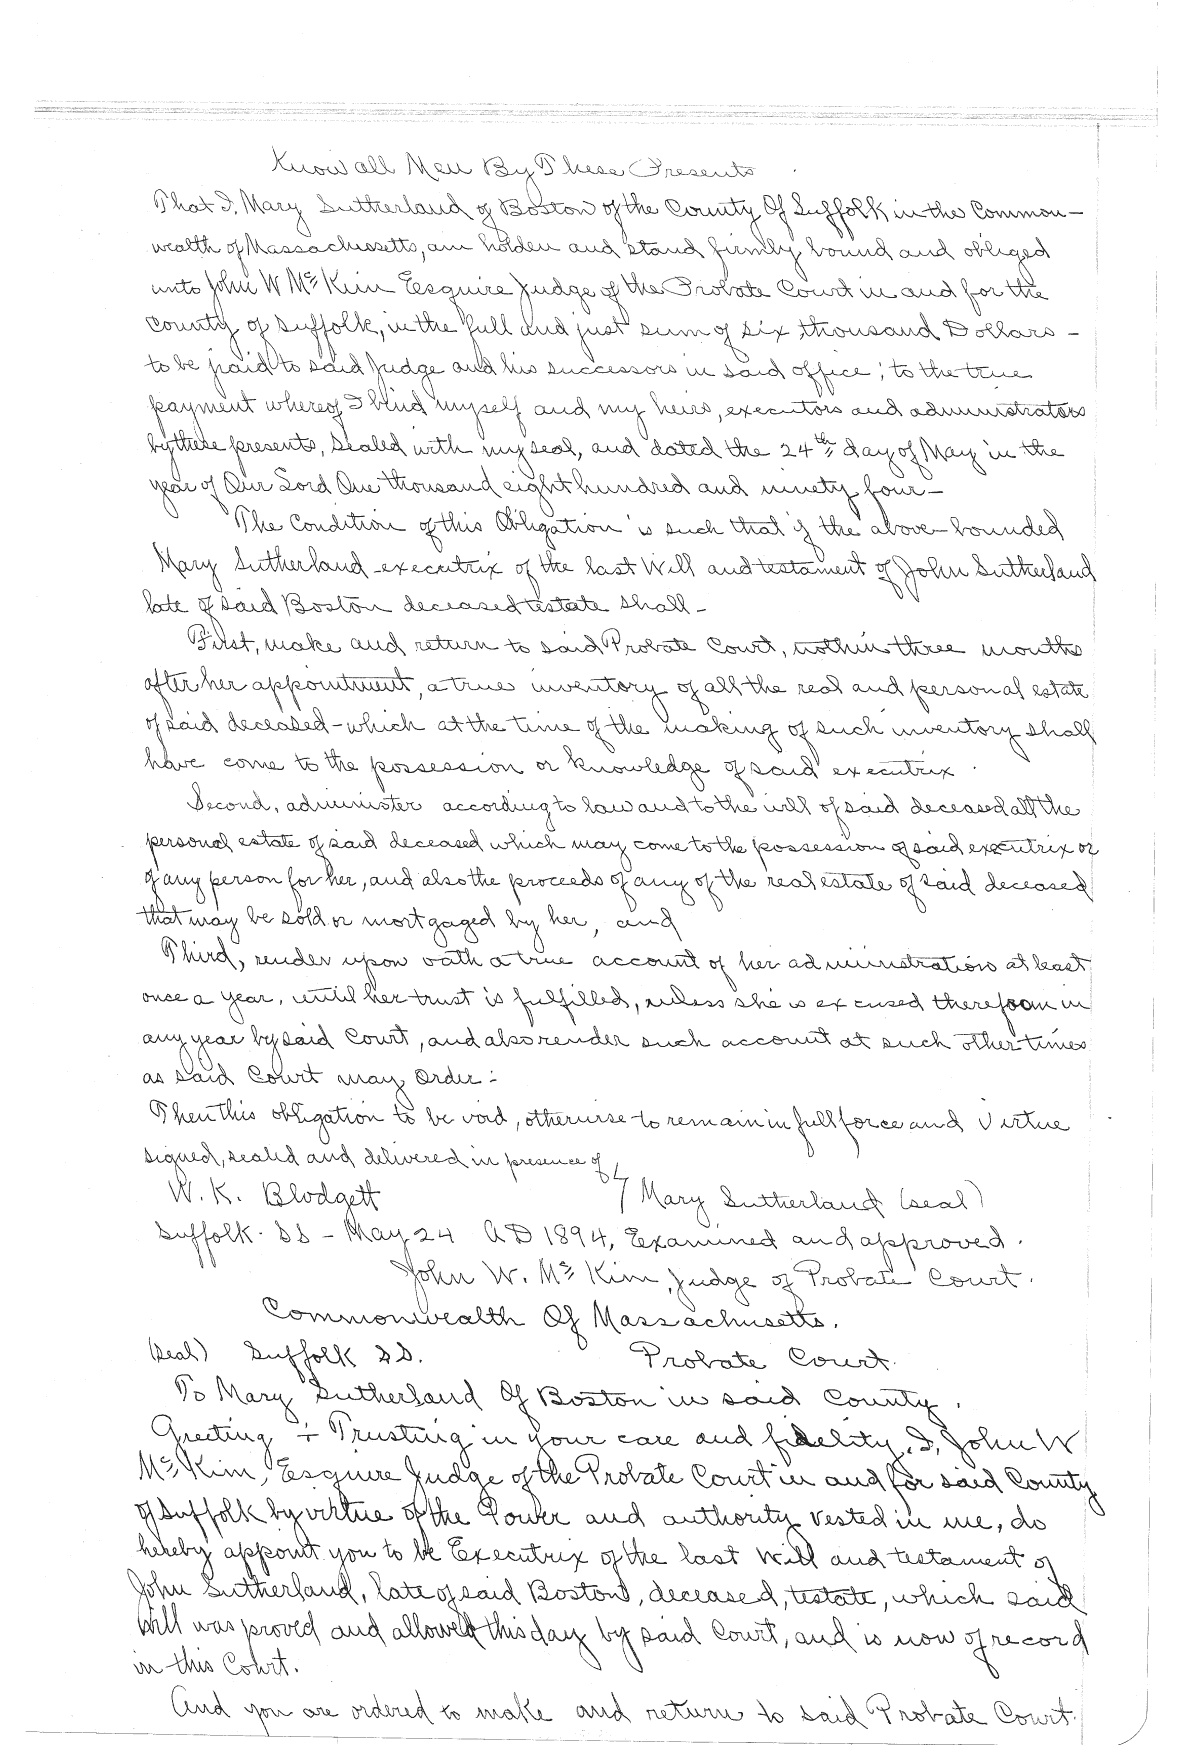 Know all Men By These Presents
That I, Mary Sutherland of Boston of the County Of Suffolk in the Common-
wealth of Massachusetts, am holden and stand firmly bound and obliged
unto John W McKim Esquire Judge of the Probate Court in and for the
County of Suffolk, in the full and just sum of six thousand Dollars -
to be paid to said Judge and his successors in said office; to the true
payment whereof I bind myself and my heirs, executors and administrators
by these presents, Sealed with my seal, and dated the 24th day of May in the
year of Our Lord One thousand eight hundred and ninety four-
The Condition of this Obligation is such that if the above-bounded
Mary Sutherland executrix of the last Will and testament of John Sutherland
late of said Boston deceased testate shall -
First, make and return to said Probate Court, within three months
after her appointment, a true inventory of all the real and personal estate
of said deceased - which at the time of the making of such inventory shall
have come to the possession or knowledge of said executrix.
Second, administer according to law and to the will of said deceased all the
personal estate of said deceased which may come to the possession of said executrix or
of any person for her, and also the proceeds of any of the real estate of said deceased
that may be sold or mortgaged by her, and
Third, render upon oath a true account of her administration at least
once a year, until her trust is fulfilled, unless she is excused therefrom in
any year by said Court, and also render such account at such other times
as said Court may Order:
Then this obligation to be void, otherwise to remain in full force and virtue
signed, sealed and delivered in presence of
W. K. Blodgett Mary Sutherland (seal)
Suffolk. SS - May 24 AD 1894, Examined and approved.
John W. McKim, Judge of Probate Court.
Commonwealth Of Massachusetts.
(seal) Suffolk SS. Probate Court.
To Mary Sutherland Of Boston in said County.
Greeting + Trusting in your care and fidelity, I, John W
McKim, Esquire Judge of the Probate Court in and for said County
of Suffolk by virtue of the Power and authority vested in me, do
hereby appoint you to be Executrix of the last Will and testament of
John Sutherland, late of said Boston, deceased, testate, which said
Will was proved and allowed this day by said Court, and is now of record
in this Court.
And you are ordered to make and return to said Probate Court.